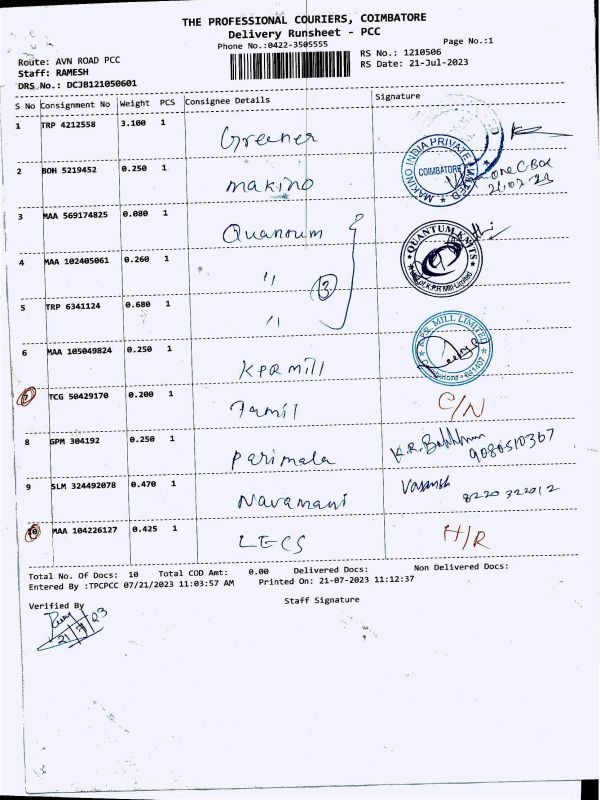 THE PROFESSIONAL COURIERS, COIMBATORE
Delivery Runsheet - PCC
Phone No.:0422-3505555
Page No.:1
Route: AVN ROAD PCC
RS No.: 1210506
Staff: RAMESH
RS Date: 21-Jul-2023
DRS No.: DCJB121050601
S No Consignment No Weight PCS Consignee Details Signature
1 TRP 4212558 3.100 1 Greener
MAKINO INDIA PRIVATE LIMITED
COIMBATORE
2 BOH 5219452 0.250 1 makino one C Box
21.07.23
3 MAA 569174825 0.080 1 Quantum
QUANTUM KNITS
4 MAA 102405061 0.260 1 "
3
5 TRP 6341124 0.680 1 "
K.P.R. MILL LIMITED
6 MAA 105049824 0.250 1 KPR mill
7 TCG 50429170 0.200 1 Tamil C/N
8 GPM 304192 0.250 1 Parimala
9080510367
9 SLM 324492078 0.470 1 Navamani Vasanth 8220322012
10 MAA 104226127 0.425 1 LECS H/R
Total No. Of Docs: 10 Total COD Amt: 0.00 Delivered Docs: Non Delivered Docs:
Entered By :TPCPCC 07/21/2023 11:03:57 AM Printed On: 21-07-2023 11:12:37
Verified By Staff Signature
21/7/23